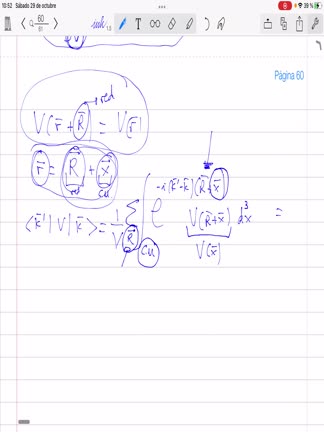 10:52 Sábado 29 de octubre 39 %
60
61
Página 60
V(r̄ + R̄) = V(r̄)
red
r̄ = R̄ + x̄
red cu
⟨k̄'| V | k̄⟩ = 1/V Σ_R̄ ∫_cu e^{-i(k̄'-k̄)(R̄+x̄)} V(R̄+x̄) d³x =
V(x̄)